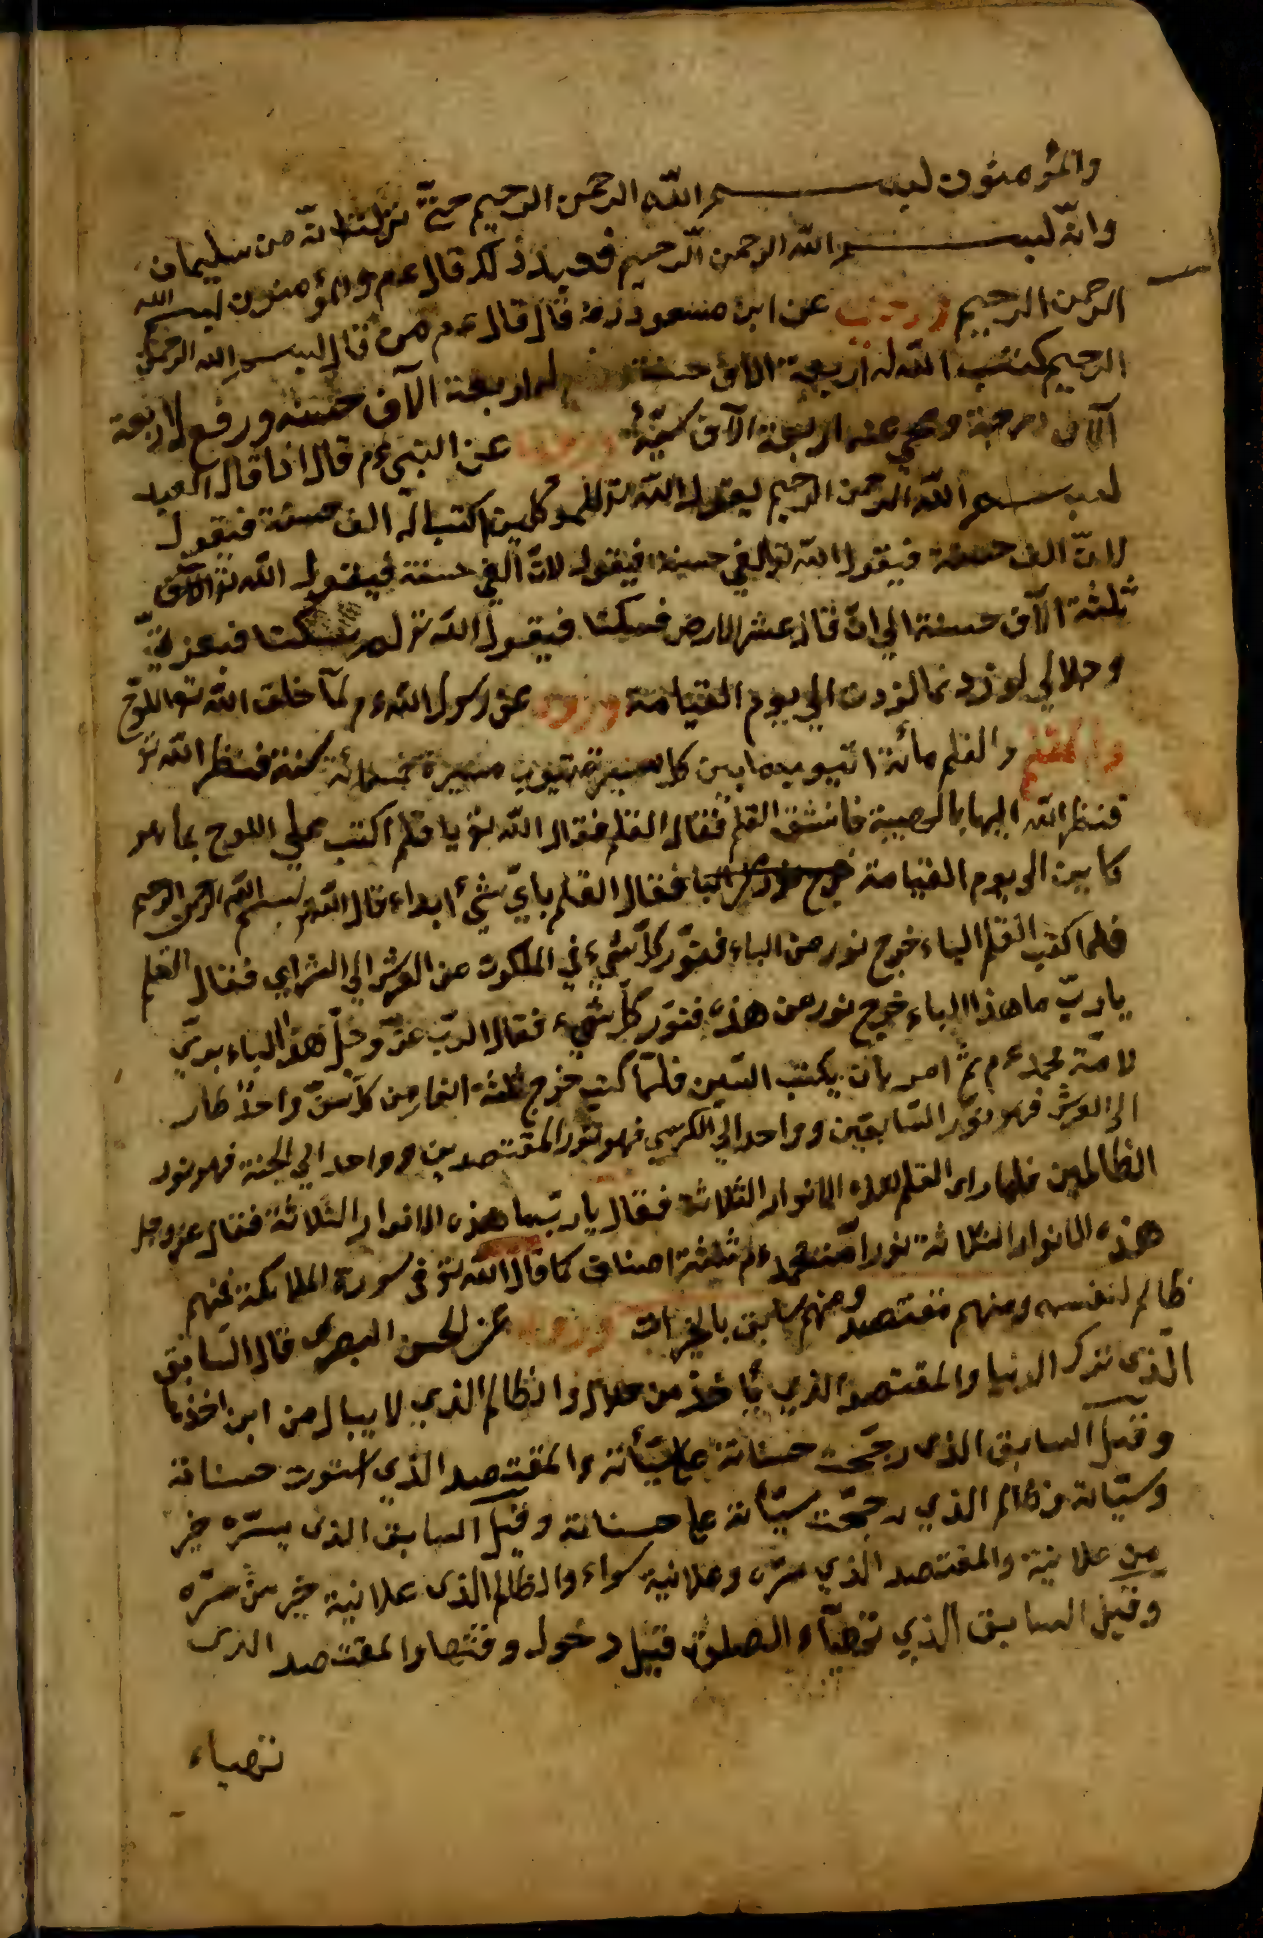 والمؤمنون بسم الله الرحمن الرحيم حتى نزلت انه من سليمان
وانه بسم الله الرحمن الرحيم فعند ذلك قال عم والمؤمنون بسم الله
الرحمن الرحيم وروي عن ابن مسعود رضه قال قال عم من قال بسم الله الرحمن
الرحيم كتب الله له اربعة الاف حسنة له اربعة الآف حسنه ورفع له اربعة
آلاف درجة ومحي عنه اربعة الآف سيئة وروي عن النبي م قال اذا قال العبد
بسم الله الرحمن الرحيم يقول الله تع للموكلين اكتبا له الف حسنة فيقول
لان الف حسنة فيقول الله تع الفي حسنة فيقولا لان الفي حسنة فيقول الله تع
ثلثة الآف حسنة الى ان قال عشر الارض فسكتا فيقول الله تع لم سكتا فبعزتي
وجلالي لو زدتما لزدت الي يوم القيامة وروي عن رسول الله م لما خلق الله تع اللوح
والقلم والقلم مائة انبوب ما بين كل انبوب مسيرة خمسمائة سنة فنظر الله تع
فنظر الله اليها بالهيبة فانشق القلم فقال القلم فقال الله تع يا قلم اكتب علي اللوح بما هو
كاين الى يوم القيامة فقال القلم باي شئ أبداء قال الله تع بسم الله الرحمن الرحيم
فلما كتب القلم الباء خرج نور من الباء فنور كل شيء في الملكوت من العرش الي الثراي فقال القلم
يا رب ما هذا الباء خرج نور من هذه فنور كل شيء فقال الرب عز وجل هذا الباء بري
لامة محمد عم ثم امر بان يكتب السين فلما كتب خرج ثلثة انوار من كل سن واحد طار
الي العرش فهو نور السابقين وواحد الي الكرسي فهو نور المقتصدين وواحد الي الجنة فهو نور
الظالمين فلما راى القلم هذه الانوار الثلاثة فقال يا رب ما هذه الانوار الثلاثة فقال عز وجل
هذه الانوار الثلاثة نور امة محمد م ثلثة اصناف كما قال الله تع في سورة الملائكة فمنهم
ظالم لنفسه ومنهم مقتصد ومنهم سابق بالخيرات وروي عن الحسن البصرى قال السابق
الذي ترك الدنيا والمقتصد الذي يأخذ من حلال والظالم الذي لا يبال من اين اخذها
وقيل السابق الذي رجحت حسناته علي سيأته والمقتصد الذي استوت حسناته
وسيأته وظالم الذي رجحت سيأته علي حسناته وقيل السابق الذي سره خير
من علانية والمقتصد الذي سره وعلانية سواء والظالم الذي علانية خير من سره
وقيل السابق الذي توضياء الصلوة قبل دخول وقتها والمقتصد الذي
توضياء